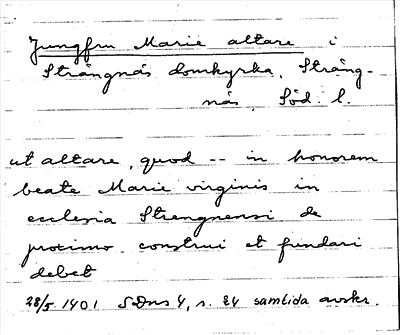 Jungfru Marie altare i
Strängnäs domkyrka, Sträng-
näs, Söd. l.
ut altare, quod -- in honorem
beate Marie virginis in
ecclesia Strengnensi de
proximo construi et fundari
debet
28/5 1401 SDns 1, s. 24 samtida avskr.